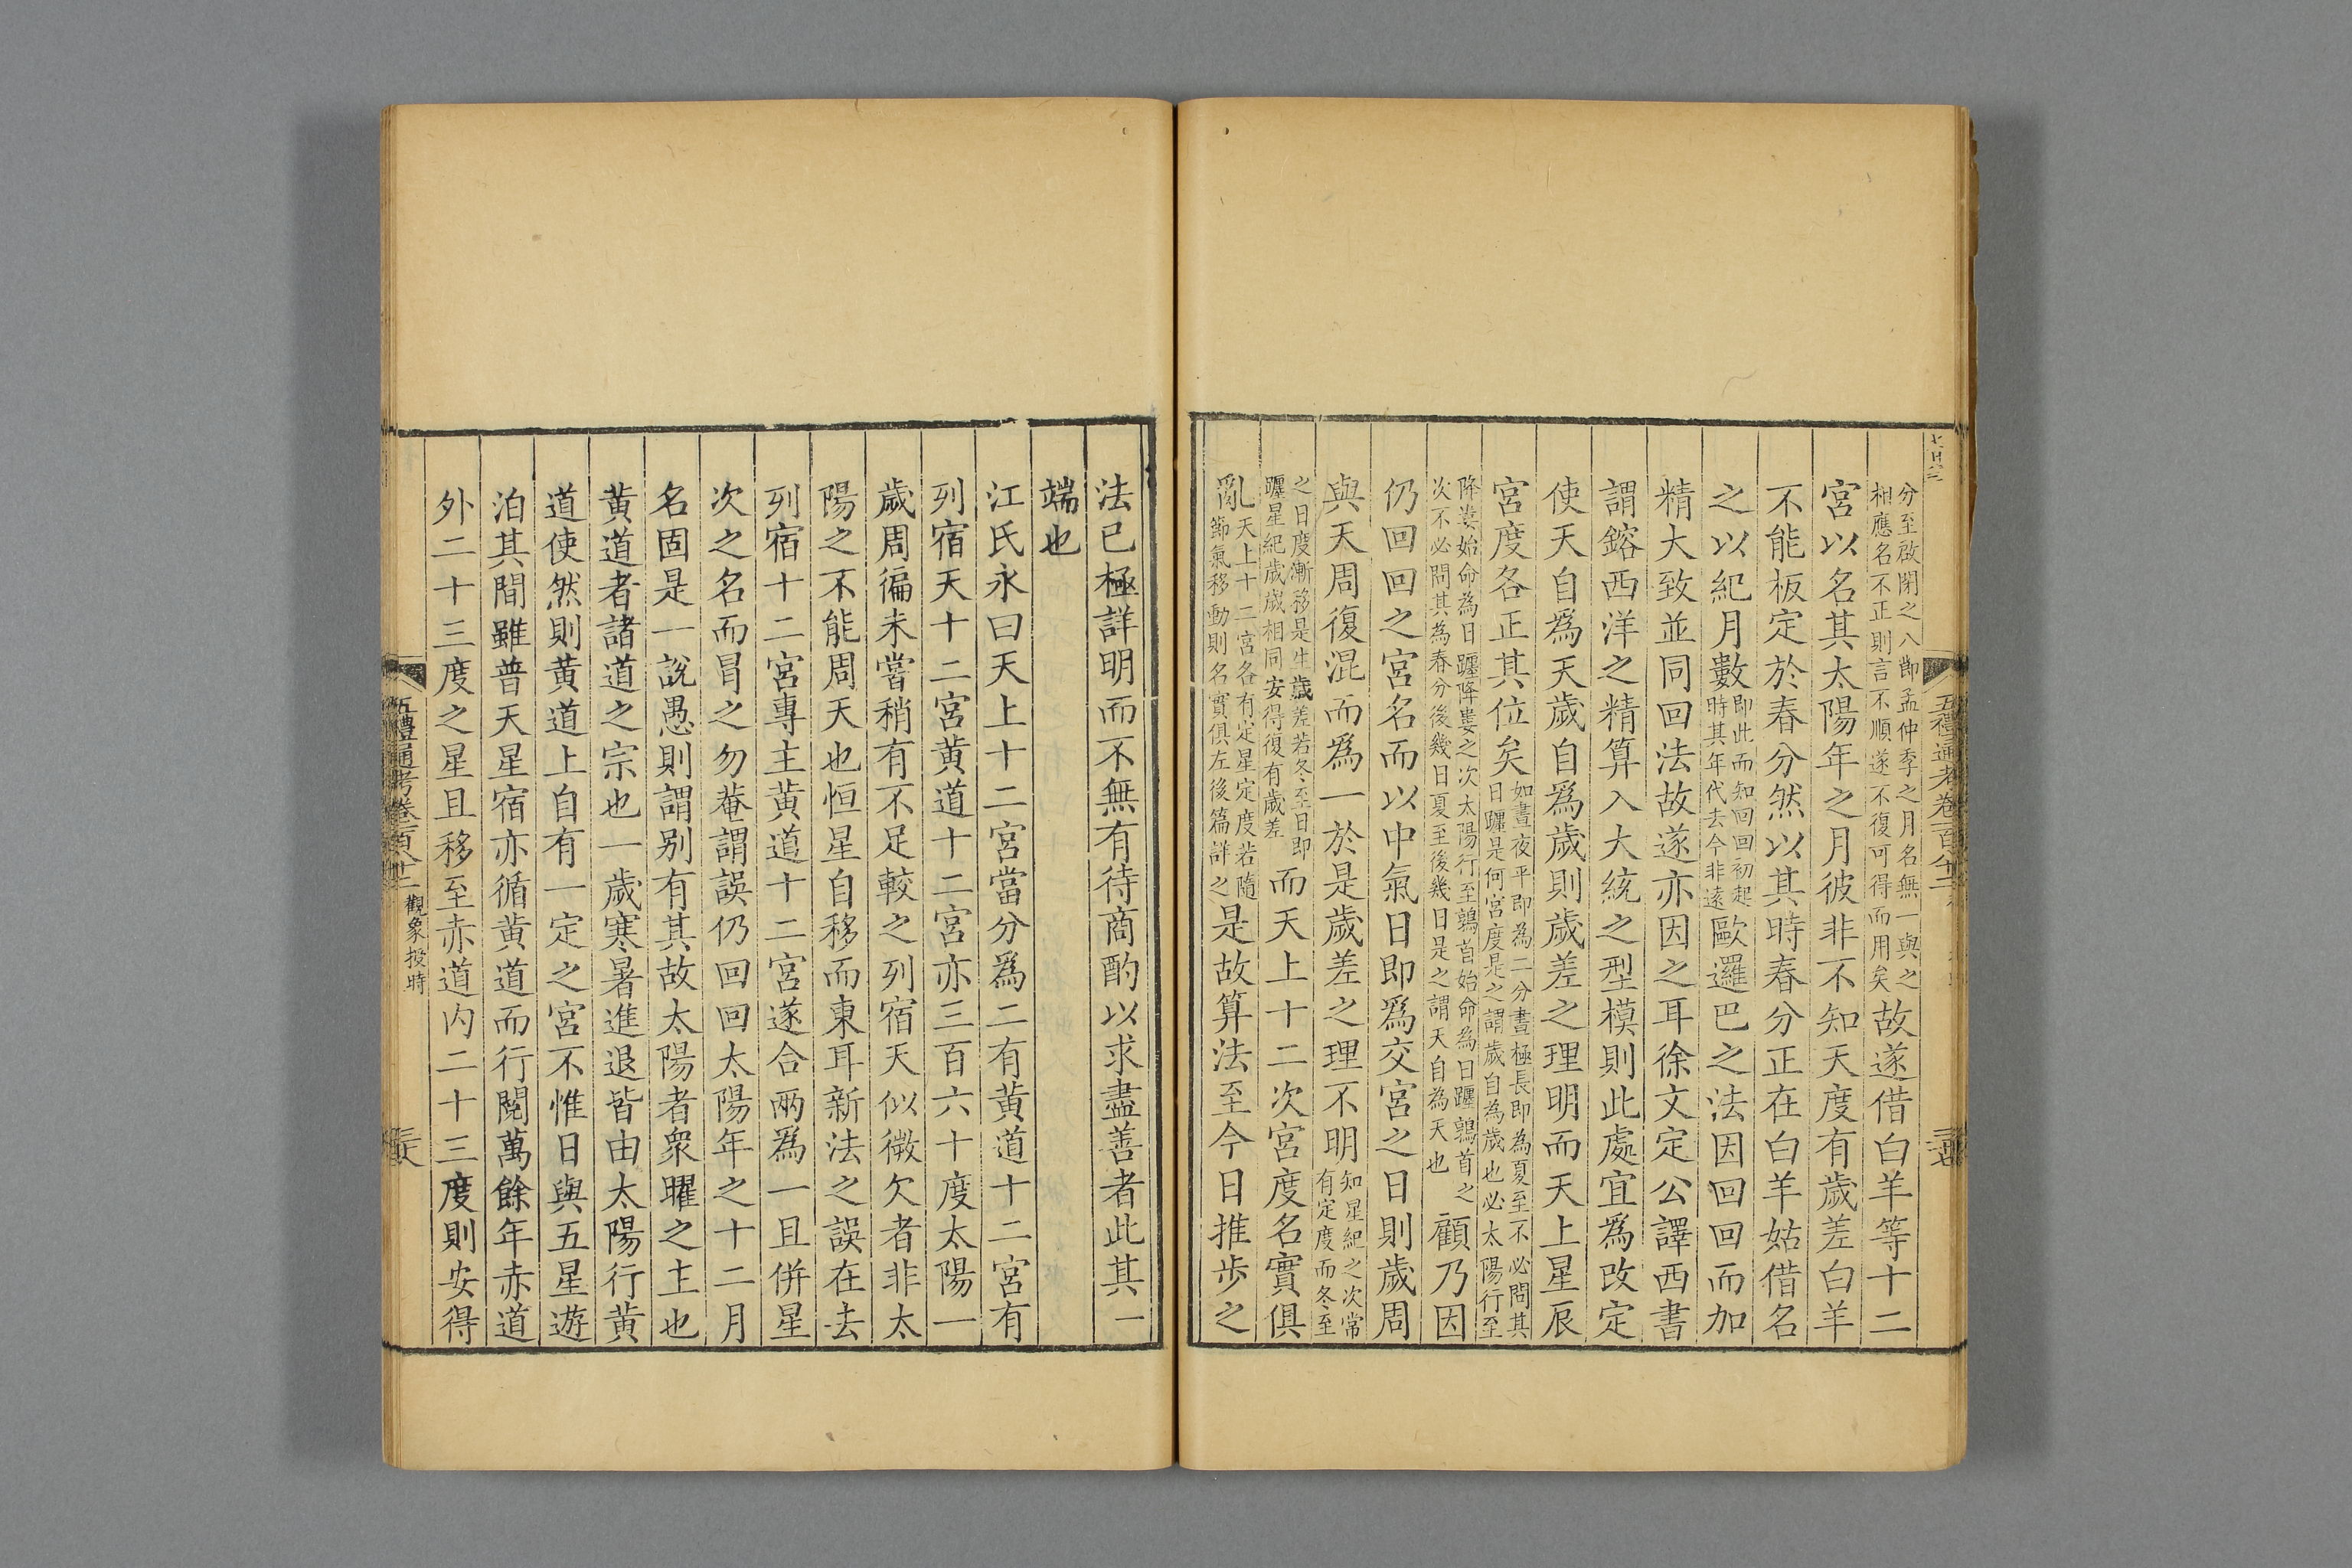 分至啟閉之八節孟仲季之月名無一與之
相應名不正則言不順遂不復可得而用矣
故遂借白羊等十二
宮以名其太陽年之月彼非不知天度有歲差白羊
不能板定於春分然以其時春分正在白羊姑借名
之以紀月數
即此而知回回初起
時其年代去今非遠
歐邏巴之法因回回而加
精大致並同回法故遂亦因之耳徐文定公譯西書
謂鎔西洋之精算入大統之型模則此處宜爲改定
使天自爲天歲自爲歲則歲差之理明而天上星辰
宮度各正其位矣
如晝夜平即為二分晝極長即為夏至不必問其
日躔是何宮度是之謂歲自為歲也必太陽行至
降婁始命為日躔降婁之次太陽行至鶉首始命為日躔鶉首之
次不必問其為春分後幾日夏至後幾日是之謂天自為天也
顧乃因
仍回回之宮名而以中氣日即爲交宮之日則歲周
與天周復混而爲一於是歲差之理不明
知星紀之次常
有定度而冬至
之日度漸移是生歲差若冬至日即
躔星紀歲歲相同安得復有歲差
而天上十二次宮度名實俱
亂
天上十二宮各有定星定度若隨
節氣移動則名實俱左後篇詳之
是故算法至今日推步之
五禮通考卷一百八十二
法已極詳明而不無有待商酌以求盡善者此其一
端也
江氏永曰天上十二宮當分爲二有黃道十二宮有
列宿天十二宮黃道十二宮亦三百六十度太陽一
歲周徧未嘗稍有不足較之列宿天似微欠者非太
陽之不能周天也恒星自移而東耳新法之誤在去
列宿十二宮專主黃道十二宮遂合兩爲一且併星
次之名而冒之勿菴謂誤仍回回太陽年之十二月
名固是一說愚則謂別有其故太陽者衆曜之主也
黃道者諸道之宗也一歲寒暑進退皆由太陽行黃
道使然則黃道上自有一定之宮不惟日與五星遊
泊其間雖普天星宿亦循黃道而行閱萬餘年赤道
外二十三度之星且移至赤道內二十三度則安得
五禮通考卷一百八十二
觀象授時